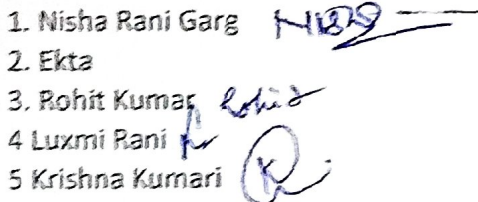 1. Nisha Rani Garg
2. Ekta
3. Rohit Kumar Rohit
4 Luxmi Rani
5 Krishna Kumari